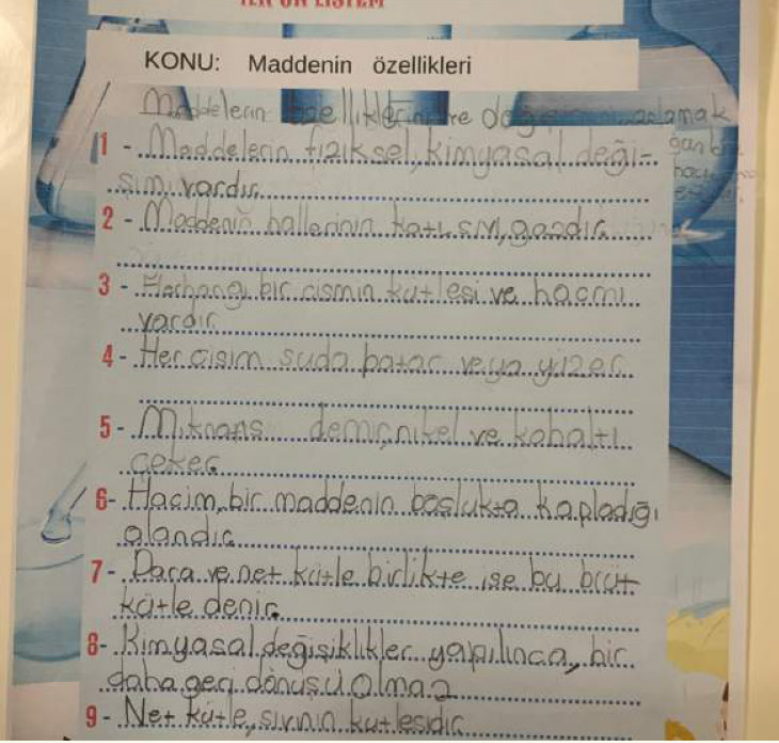 KONU: Maddenin özellikleri
Maddelerin özelliklerini ve
1 - Maddelerin fiziksel, kimyasal deği-
şim vardır.
2 - Maddenin hallerinin katı, sıvı, gazdır.
3 - Herhangi bir cismin kütlesi ve hacmi
vardır.
4 - Her cisim suda batar veya yüzer.
5 - Mıknatıs demir, nikel ve kobaltı
çeker.
6- Hacim, bir maddenin boşlukta kapladığı
alandır.
7 - Dara ve net kütle birlikte ise bu brüt
kütle denir.
8- Kimyasal değişiklikler yapılınca, bir
daha geri dönüşü olmaz
9 - Net kütle, sıvının kütlesidir.